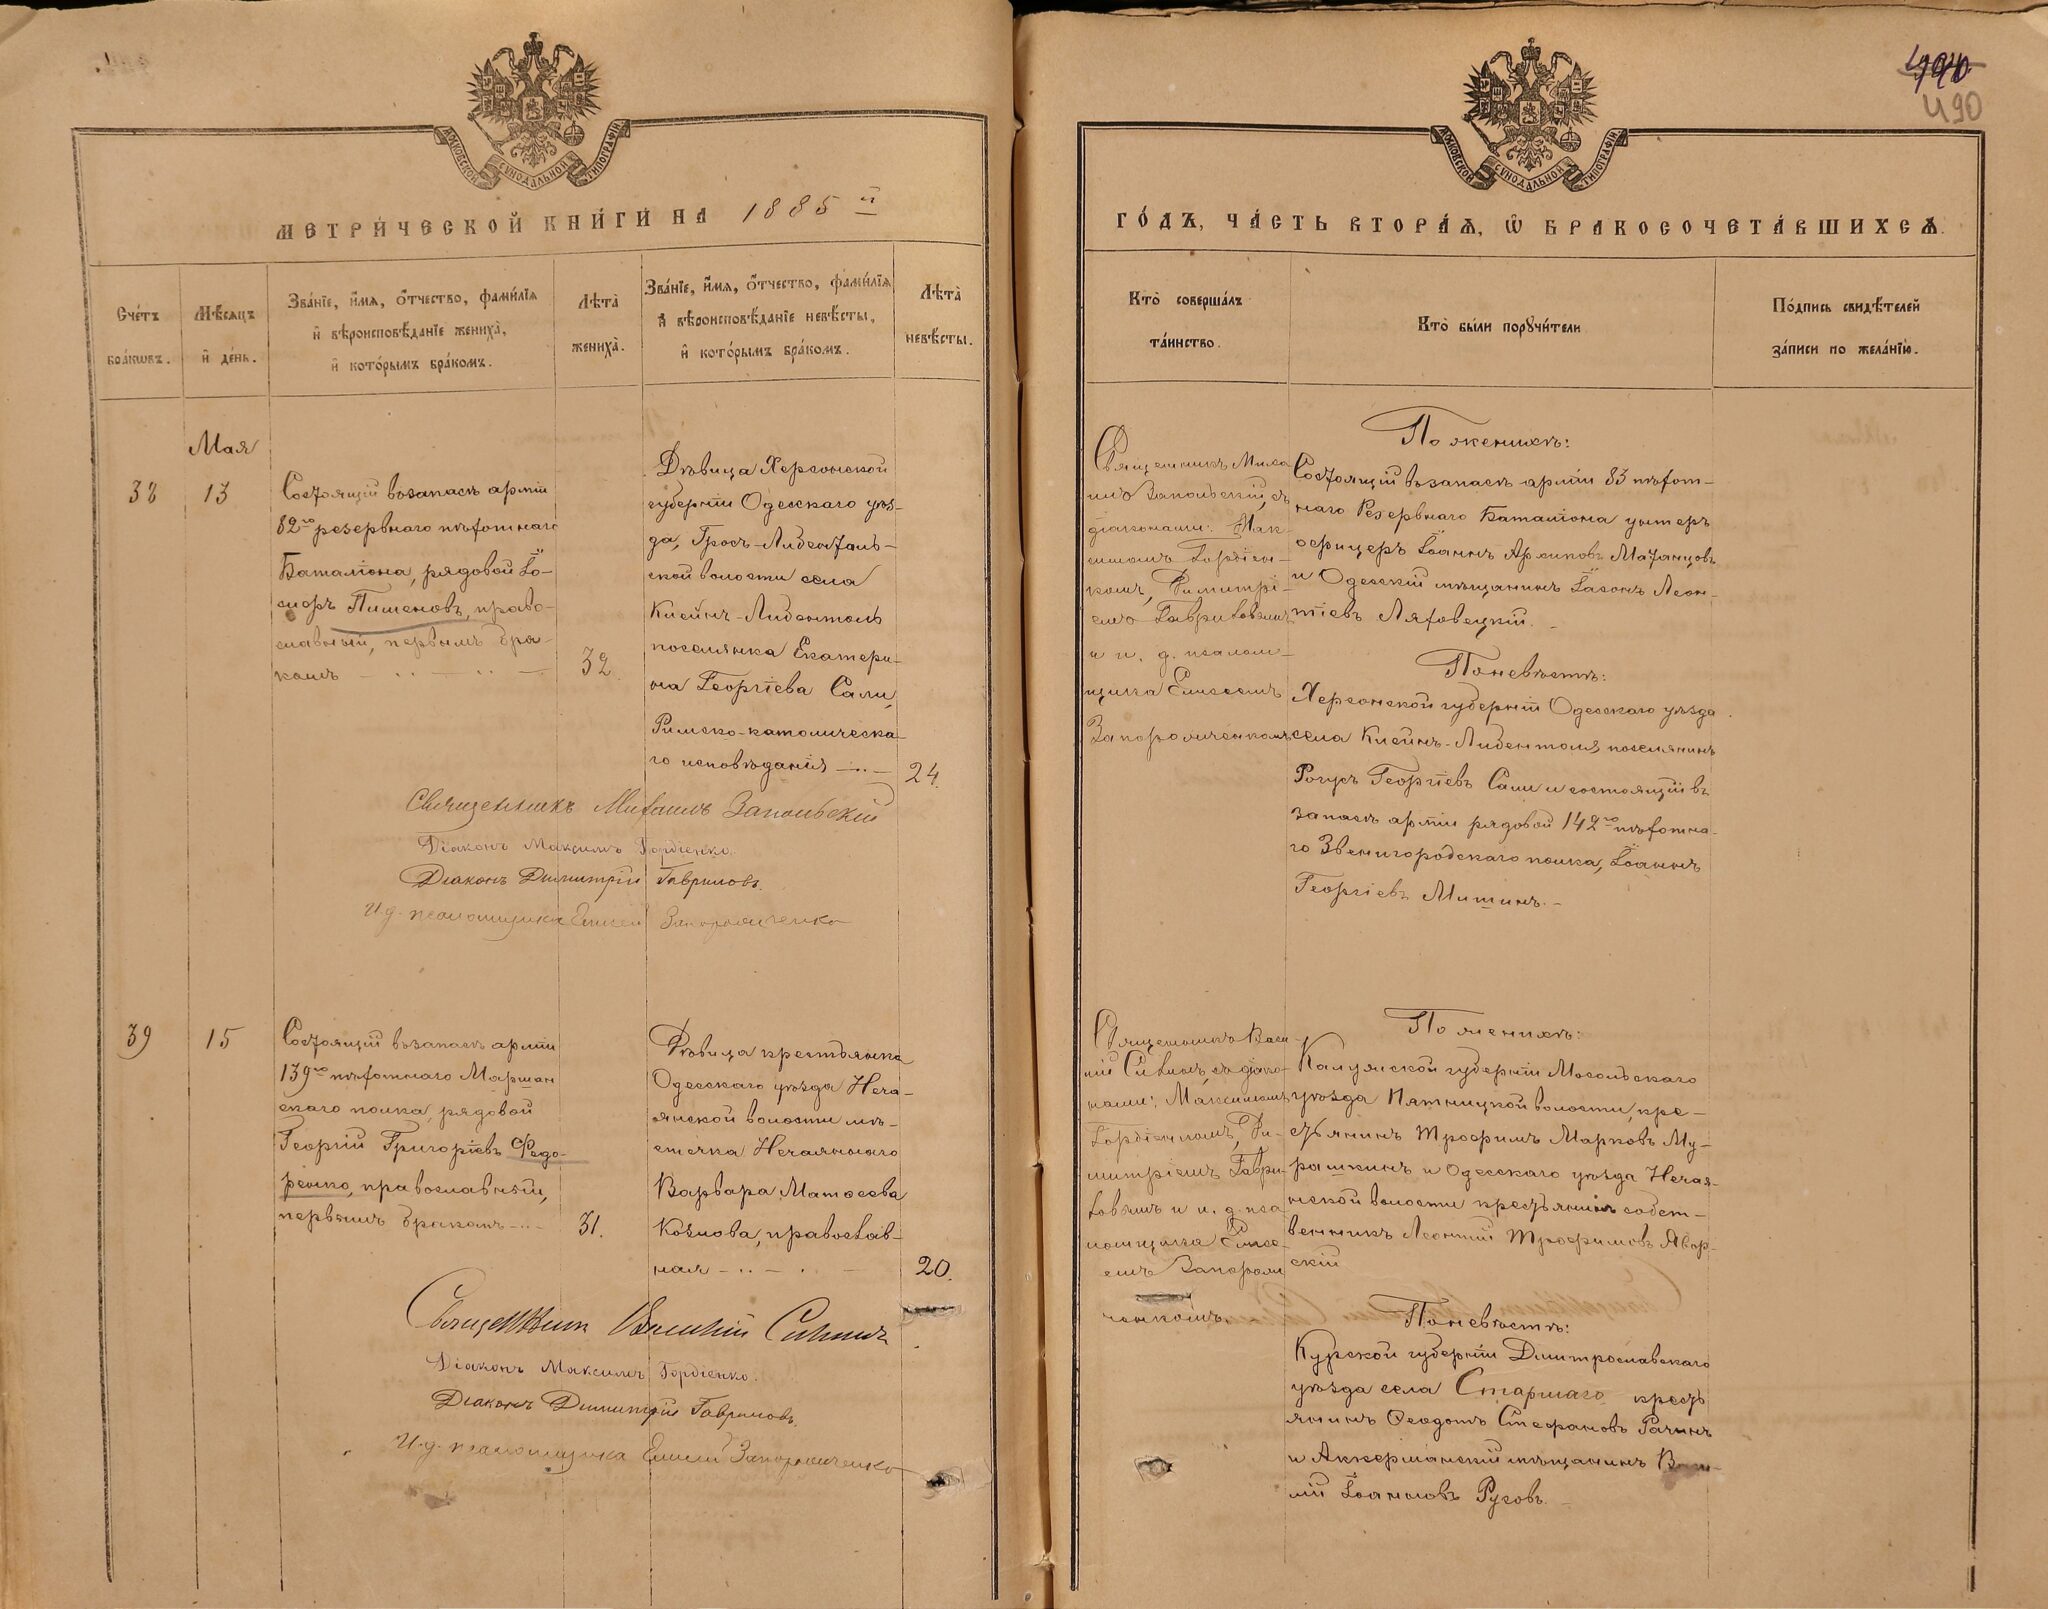 МОСКОВСКОЙ СѴНОДАЛЬНОЙ ТИПОГРАФІИ
МЕТРИ́ЧЕСКОЙ КНИ́ГИ НА 1885 й
Сче́тъ бра́кωвъ.
Мѣ́сяцъ и҆ де́нь.
Зва́нїе, и҆́мѧ, ѻ҆́тчество, фами́лїѧ
и҆ вѣроисповѣ́данїе жениха̀,
и҆ кото́рымъ бра́комъ.
Лѣта̀
жениха̀.
Зва́нїе, и҆́мѧ, ѻ҆́тчество, фами́лїѧ
и҆ вѣроисповѣ́данїе невѣ́сты,
и҆ кото́рымъ бра́комъ.
Лѣта̀
невѣ́сты.
Мая
38
13
Состоящій въ запасѣ арміи
82го резервнаго пѣхотнаго
Баталіона, рядовой Іо-
сифъ Пименовъ, право-
славный, первымъ бра-
комъ
32.
Дѣвица Херсонской
губерніи Одесскаго уѣз-
да, Гросъ-Либенталь-
ской волости села
Клейнъ-Либенталь
поселянка Екатери-
на Георгіева Сали,
Римско-католическа-
го исповѣданія
24.
Священникъ Михаилъ Запольскій
Діаконъ Максимъ Гордіенко.
Діаконъ Димитрій Гавриловъ.
И. д. псаломщика Елисей Запорожченко
39
15
Состоящій въ запасѣ арміи
139го пѣхотнаго Моршан
скаго полка, рядовой
Георгій Григоріевъ Федо-
ренко, православный,
первымъ бракомъ
31.
Дѣвица крестьянка
Одесскаго уѣзда Неча-
янской волости мѣ-
стечка Нечаяннаго
Варвара Матѳеева
Козлова, православ-
ная
20.
Священникъ Василій
Діаконъ Максимъ Гордіенко.
Діаконъ Димитрій Гавриловъ.
И. д. псаломщика Елисей Запорожченко
490
МОСКОВСКОЙ СѴНОДАЛЬНОЙ ТИПОГРАФІИ
ГО́ДЪ, ЧА́СТЬ ВТОРА́Ѧ, Ѡ҆ БРАКОСОЧЕТА́ВШИХСѦ.
Кто̀ соверша́лъ
та́инство.
Кто̀ бы́ли порꙋчи́тели
По́дпись свидѣ́телей
за́писи по жела́нїю.
Священникъ Миха
илъ Запольскій, съ
діаконами: Мак-
симомъ Гордіен-
комъ, Димитрі-
емъ Гавриловымъ
и и. д. псалом-
щика Елисеемъ
Запорожченкомъ
По женихѣ:
Состоящій въ запасѣ арміи 83 пѣхот-
наго Резервнаго Баталіона унтеръ
офицеръ Іоаннъ Архиповъ Матянцовъ
и Одесскій мѣщанинъ Іасонъ Леон-
тіевъ Ляховецкій.
По невѣстѣ:
Херсонской губерніи Одесскаго уѣзда
села Клейнъ-Либенталя поселянинъ
Рогусъ Георгіевъ Сали и состоящій въ
запасѣ арміи рядовой 142го пѣхотна-
го Звенигородскаго полка, Іоаннъ
Георгіевъ Митинъ.
Священникъ Васи
лій съ діако-
нами: Максимомъ
Гордіенкомъ, Ди-
митріемъ Гаври-
ловымъ и и. д. пса
ломщика Елисе-
емъ Запорож
ченкомъ.
По женихѣ:
Калужской губерніи Мосальскаго
уѣзда Пятницкой волости, кре-
стьянинъ Трофимъ Марковъ Му-
рашкинъ и Одесскаго уѣзда Нечая-
нской волости крестьянинъ собст-
венникъ Леонтій Трофимовъ Явор-
скій
По невѣстѣ:
Курской губерніи Дмитрославскаго
уѣзда села Старшаго крестъ
янинъ Ѳеодотъ Стефановъ Рачинъ
и Аккерманскій мѣщанинъ Васи-
лій Іоанновъ Русовъ.